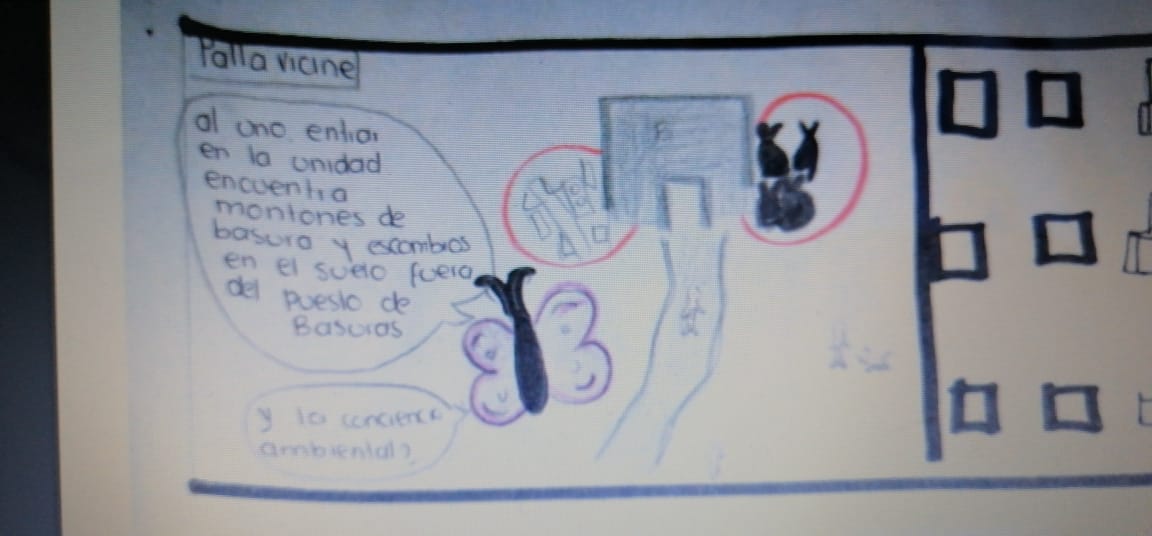 Pallavicine
al uno entrar
en la unidad
encuentra
montones de
basura y escombros
en el suelo fuera
del puesto de
Basuras
y la conciencia
ambiental?
B